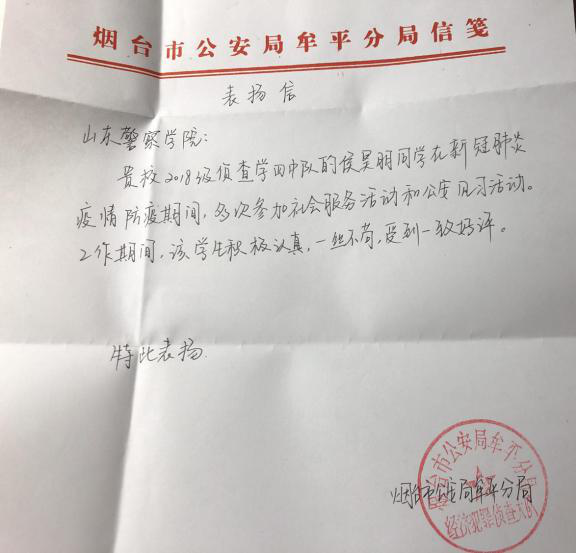 烟台市公安局牟平分局信笺
表扬信
山东警察学院：
贵校2018级侦查学四中队的侯昊明同学在新冠肺炎
疫情防疫期间，多次参加社会服务活动和公安见习活动。
工作期间，该学生积极认真，一丝不苟，受到一致好评。
特此表扬.
烟台市公安局牟平分局
烟台市公安局牟平分局
经济犯罪侦查大队